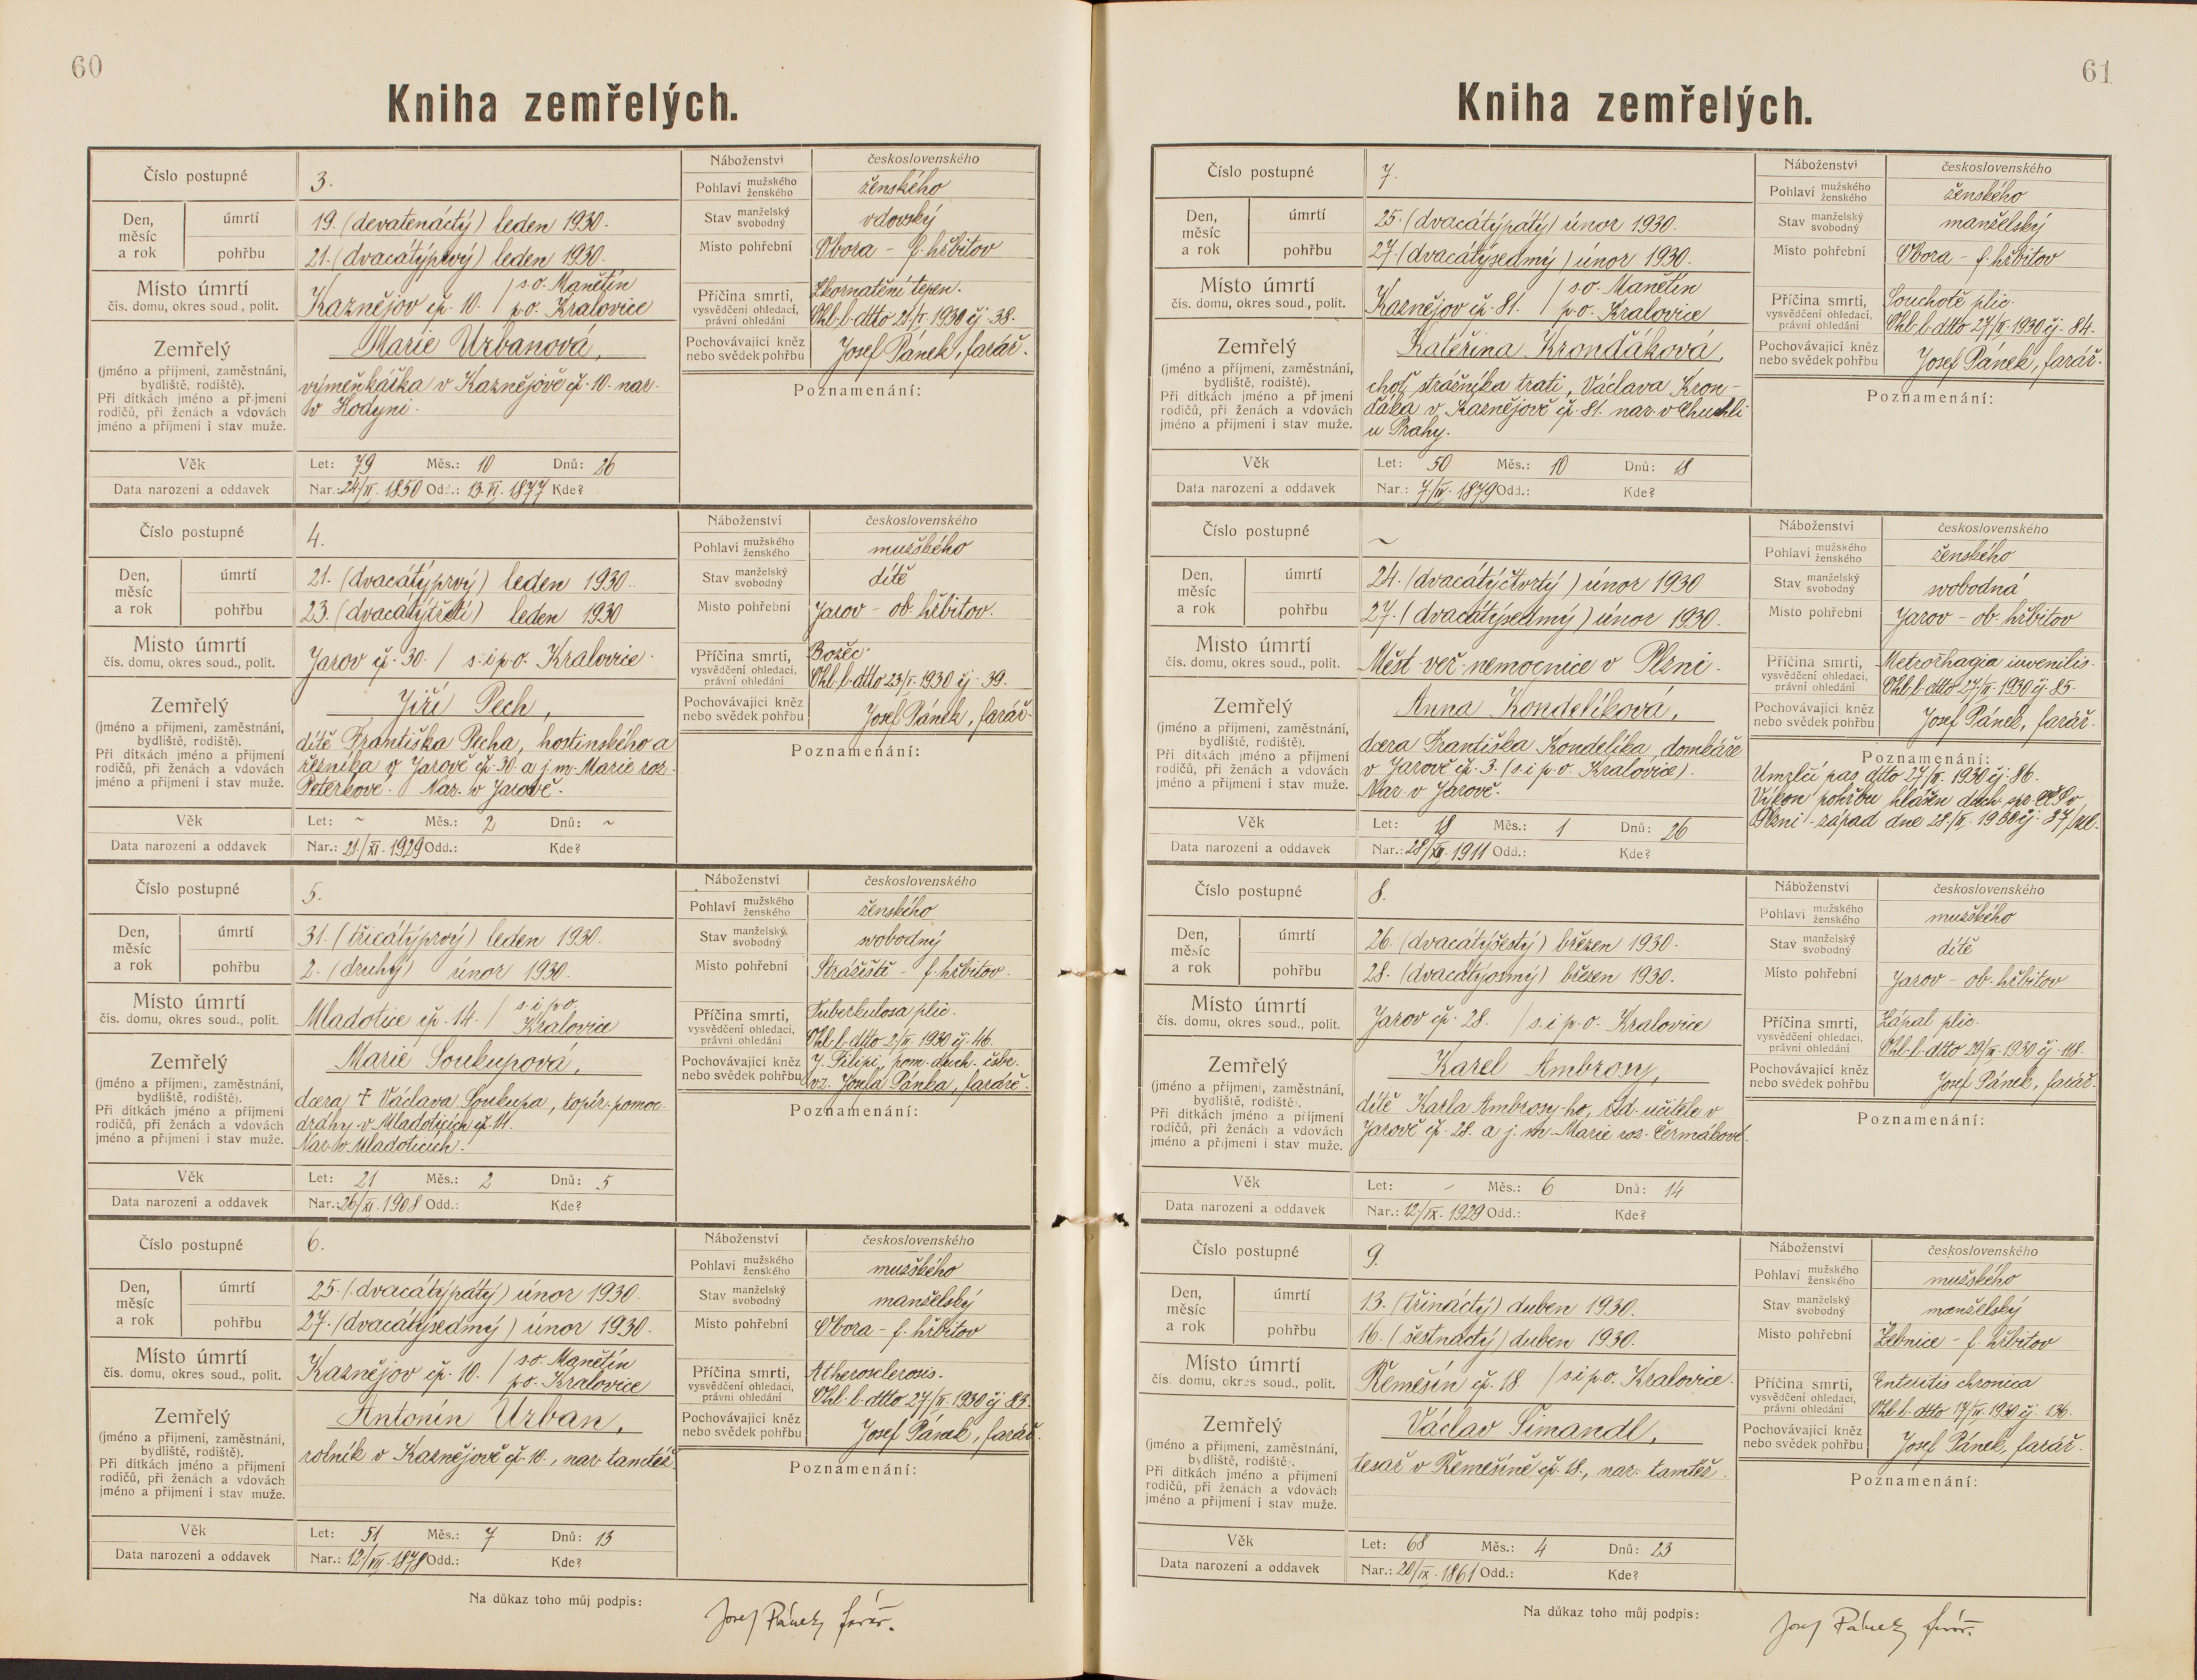 60
Kniha zemřelých.
Číslo postupné
3.
Náboženství
československého
Pohlaví mužského ženského
ženského
Den, měsíc a rok
úmrtí
19. (devatenáctý) leden 1930.
Stav manželský svobodný
vdovský
pohřbu
21. (dvacátýprvý) leden 1930.
Místo pohřební
Obora - f. hřbitov
Místo úmrtí
čís. domu, okres soud., polit.
Kaznějov čp. 10. / s.o. Manětín
p.o. Kralovice
Příčina smrti,
vysvědčení ohledací,
právní ohledání
Zkornatění tepen.
Ohl. l. dtto 21/I. 1930 čj. 38.
Zemřelý
(jméno a příjmení, zaměstnání,
bydliště, rodiště).
Při dítkách jméno a příjmení
rodičů, při ženách a vdovách
jméno a příjmení i stav muže.
Marie Urbanová,
výměnkářka v Kaznějově čp. 10. nar.
v Hodyni.
Pochovávající kněz
nebo svědek pohřbu
Josef Pánek, farář.
Poznamenání:
Věk
Let: 79 Měs.: 10 Dnů: 26
Data narození a oddavek
Nar.: 24/II. 1850 Odd.: 13. VI. 1877 Kde?
Číslo postupné
4.
Náboženství
československého
Pohlaví mužského ženského
mužského
Den, měsíc a rok
úmrtí
21. (dvacátýprvý) leden 1930.
Stav manželský svobodný
dítě
pohřbu
23. (dvacátýtřetí) leden 1930
Místo pohřební
Jarov - ob. hřbitov.
Místo úmrtí
čís. domu, okres soud., polit.
Jarov čp. 30. / s. i p. o. Kralovice.
Příčina smrti,
vysvědčení ohledací,
právní ohledání
Božec.
Ohl. l. dtto 23/I. 1930 čj. 39.
Zemřelý
(jméno a příjmení, zaměstnání,
bydliště, rodiště).
Při dítkách jméno a příjmení
rodičů, při ženách a vdovách
jméno a příjmení i stav muže.
Jiří Pech,
dítě Františka Pecha, hostinského a
řezníka v Jarově čp. 30. a j. m. Marie roz.
Peterkové. Nar. v Jarově.
Pochovávající kněz
nebo svědek pohřbu
Josef Pánek, farář.
Poznamenání:
Věk
Let: ~ Měs.: 2 Dnů: ~
Data narození a oddavek
Nar.: 21/XI. 1929 Odd.: Kde?
Číslo postupné
5.
Náboženství
československého
Pohlaví mužského ženského
ženského
Den, měsíc a rok
úmrtí
31. (třicátýprvý) leden 1930.
Stav manželský svobodný
svobodný
pohřbu
2. (druhý) únor 1930.
Místo pohřební
Strážiště - f. hřbitov.
Místo úmrtí
čís. domu, okres soud., polit.
Mladotice čp. 14. / s. i p. o.
Kralovice
Příčina smrti,
vysvědčení ohledací,
právní ohledání
Tuberkulosa plic.
Ohl. l. dtto 2/II. 1930 čj. 46.
Zemřelý
(jméno a příjmení, zaměstnání,
bydliště, rodiště).
Při dítkách jméno a příjmení
rodičů, při ženách a vdovách
jméno a příjmení i stav muže.
Marie Soukupová,
dcera † Václava Soukupa, topič. pomoc.
dráhy v Mladoticích čp. 14.
Nar. v Mladoticích.
Pochovávající kněz
nebo svědek pohřbu
J. Filipi, pom. duch. čsbc.
vz. Josefa Pánka, faráře.
Poznamenání:
Věk
Let: 21 Měs.: 2 Dnů: 5
Data narození a oddavek
Nar.: 26/XI. 1908 Odd.: Kde?
Číslo postupné
6.
Náboženství
československého
Pohlaví mužského ženského
mužského
Den, měsíc a rok
úmrtí
25. (dvacátýpátý) únor 1930.
Stav manželský svobodný
manželský
pohřbu
27. (dvacátýsedmý) únor 1930.
Místo pohřební
Obora - f. hřbitov
Místo úmrtí
čís. domu, okres soud., polit.
Kaznějov čp. 10. / s.o. Manětín
p.o. Kralovice
Příčina smrti,
vysvědčení ohledací,
právní ohledání
Atherosclerosis.
Ohl. l. dtto 27/II. 1930 čj. 83.
Zemřelý
(jméno a příjmení, zaměstnání,
bydliště, rodiště).
Při dítkách jméno a příjmení
rodičů, při ženách a vdovách
jméno a příjmení i stav muže.
Antonín Urban,
rolník v Kaznějově čp. 10., nar. tamtéž.
Pochovávající kněz
nebo svědek pohřbu
Josef Pánek, farář.
Poznamenání:
Věk
Let: 51 Měs.: 7 Dnů: 13
Data narození a oddavek
Nar.: 12/VII. 1878 Odd.: Kde?
Na důkaz toho můj podpis:
Josef Pánek, farář.
61
Kniha zemřelých.
Číslo postupné
7.
Náboženství
československého
Pohlaví mužského ženského
ženského
Den, měsíc a rok
úmrtí
25. (dvacátýpátý) únor 1930.
Stav manželský svobodný
manželský
pohřbu
27. (dvacátýsedmý) únor 1930.
Místo pohřební
Obora - f. hřbitov
Místo úmrtí
čís. domu, okres soud., polit.
Kaznějov čp. 81. / s.o. Manětín
p.o. Kralovice
Příčina smrti,
vysvědčení ohledací,
právní ohledání
Souchotě plic.
Ohl. l. dtto 27/II. 1930 čj. 84.
Zemřelý
(jméno a příjmení, zaměstnání,
bydliště, rodiště).
Při dítkách jméno a příjmení
rodičů, při ženách a vdovách
jméno a příjmení i stav muže.
Kateřina Kronďáková,
choť strážníka trati, Václava Kron-
ďáka v Kaznějově čp. 81. nar. v Chuchli
u Prahy.
Pochovávající kněz
nebo svědek pohřbu
Josef Pánek, farář.
Poznamenání:
Věk
Let: 50 Měs.: 10 Dnů: 18
Data narození a oddavek
Nar.: 7/IV. 1879 Odd.: Kde?
Číslo postupné
~
Náboženství
československého
Pohlaví mužského ženského
ženského
Den, měsíc a rok
úmrtí
24. (dvacátýčtvrtý) únor 1930
Stav manželský svobodný
svobodná
pohřbu
27. (dvacátýsedmý) únor 1930.
Místo pohřební
Jarov - ob. hřbitov
Místo úmrtí
čís. domu, okres soud., polit.
Měst. veř. nemocnice v Plzni.
Příčina smrti,
vysvědčení ohledací,
právní ohledání
Metrorhagia iuvenilis.
Ohl. l. dtto 27/II. 1930 čj. 85.
Zemřelý
(jméno a příjmení, zaměstnání,
bydliště, rodiště).
Při dítkách jméno a příjmení
rodičů, při ženách a vdovách
jméno a příjmení i stav muže.
Anna Kondelíková,
dcera Františka Kondelíka, domkáře
v Jarově čp. 3. (s. i p. o. Kralovice).
Nar. v Jarově.
Pochovávající kněz
nebo svědek pohřbu
Josef Pánek, farář.
Poznamenání:
Umrlčí pas dtto 27/II. 1930 čj. 86.
Výkon pohřbu hlášen duch. spr. v
Plzni - západ dne 28/II. 1930 čj. 87
Věk
Let: 18 Měs.: 1 Dnů: 26
Data narození a oddavek
Nar.: 28/XII. 1911 Odd.: Kde?
Číslo postupné
8.
Náboženství
československého
Pohlaví mužského ženského
mužského
Den, měsíc a rok
úmrtí
26. (dvacátýšestý) březen 1930.
Stav manželský svobodný
dítě
pohřbu
28. (dvacátýosmý) březen 1930.
Místo pohřební
Jarov - ob. hřbitov
Místo úmrtí
čís. domu, okres soud., polit.
Jarov čp. 28. / s. i p. o. Kralovice
Příčina smrti,
vysvědčení ohledací,
právní ohledání
Zápal plic.
Ohl. l. dtto 29/III. 1930 čj. 118.
Zemřelý
(jméno a příjmení, zaměstnání,
bydliště, rodiště).
Při dítkách jméno a příjmení
rodičů, při ženách a vdovách
jméno a příjmení i stav muže.
Karel Ambrosy,
dítě Karla Ambrosy-ho, učitele v
Jarově čp. 28. a j. m. Marie roz. Čermákové.
Pochovávající kněz
nebo svědek pohřbu
Josef Pánek, farář.
Poznamenání:
Věk
Let: - Měs.: 6 Dnů: 14
Data narození a oddavek
Nar.: 12/IX. 1929 Odd.: Kde?
Číslo postupné
9.
Náboženství
československého
Pohlaví mužského ženského
mužského
Den, měsíc a rok
úmrtí
13. (třináctý) duben 1930.
Stav manželský svobodný
manželský
pohřbu
16. (šestnáctý) duben 1930.
Místo pohřební
Žebnice - f. hřbitov
Místo úmrtí
čís. domu, okres soud., polit.
Řemešín čp. 18. / s. i p. o. Kralovice.
Příčina smrti,
vysvědčení ohledací,
právní ohledání
Enteritis chronica
Ohl. l. dtto 17/IV. 1930 čj. 136.
Zemřelý
(jméno a příjmení, zaměstnání,
bydliště, rodiště).
Při dítkách jméno a příjmení
rodičů, při ženách a vdovách
jméno a příjmení i stav muže.
Václav Šimandl,
tesař v Řemešíně čp. 18., nar. tamtéž.
Pochovávající kněz
nebo svědek pohřbu
Josef Pánek, farář.
Poznamenání:
Věk
Let: 68 Měs.: 4 Dnů: 23
Data narození a oddavek
Nar.: 20/IX. 1861 Odd.: Kde?
Na důkaz toho můj podpis:
Josef Pánek, farář.